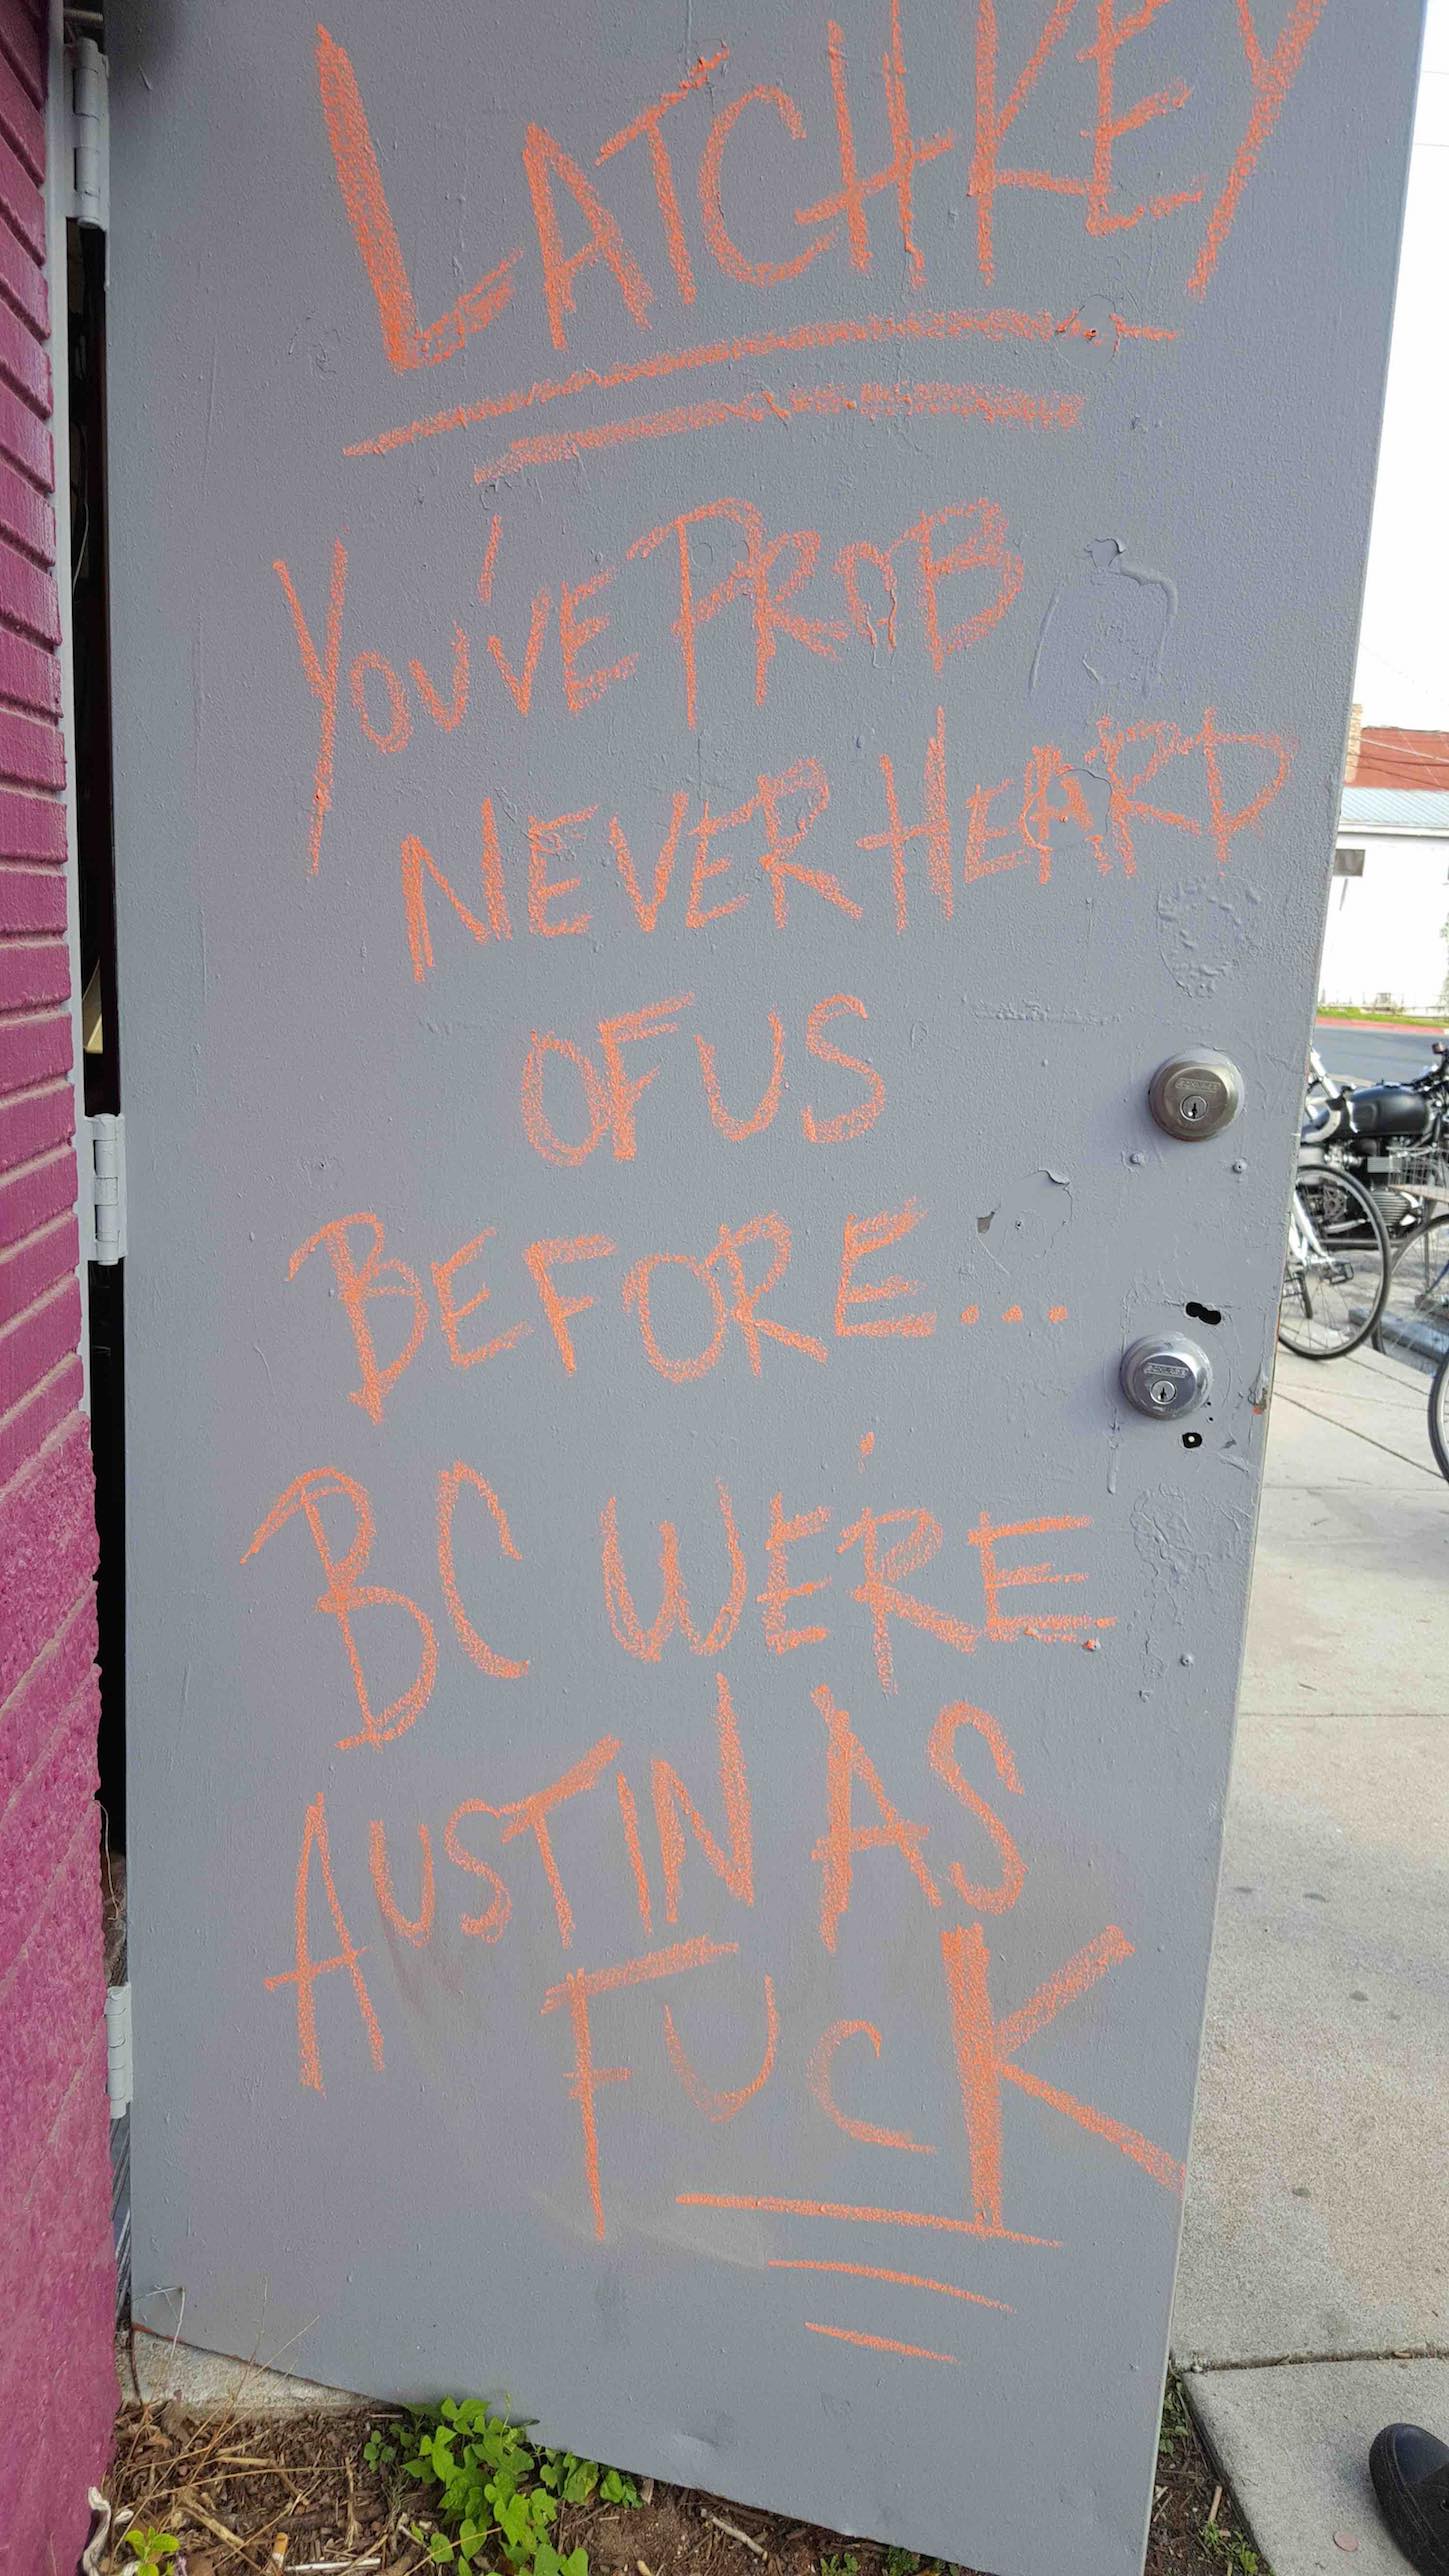 LATCHKEY
YOU'VE PROB
NEVER HEARD
OF US
BEFORE...
BC WE'RE
AUSTIN AS
FUCK